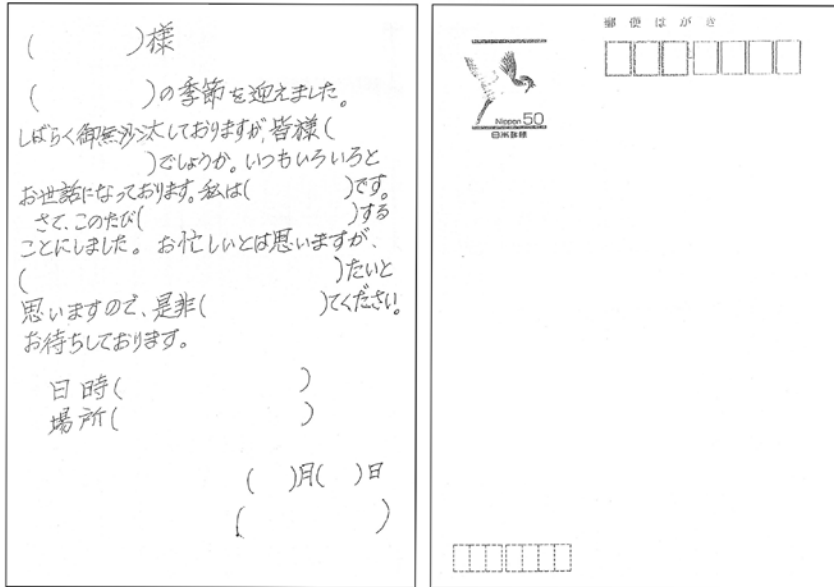 (　　　　)様
(　　　　)の季節を迎えました。
しばらく御無沙汰しておりますが、皆様(
)でしょうか。いつもいろいろと
お世話になっております。私は(　　　　)です。
さて、このたび(　　　　)する
ことにしました。お忙しいとは思いますが、
(　　　　)たいと
思いますので、是非(　　　　)てください。
お待ちしております。
日時(　　　　)
場所(　　　　)
(　)月(　)日
(　　　　)
郵便はがき
Nippon 50
日本郵便